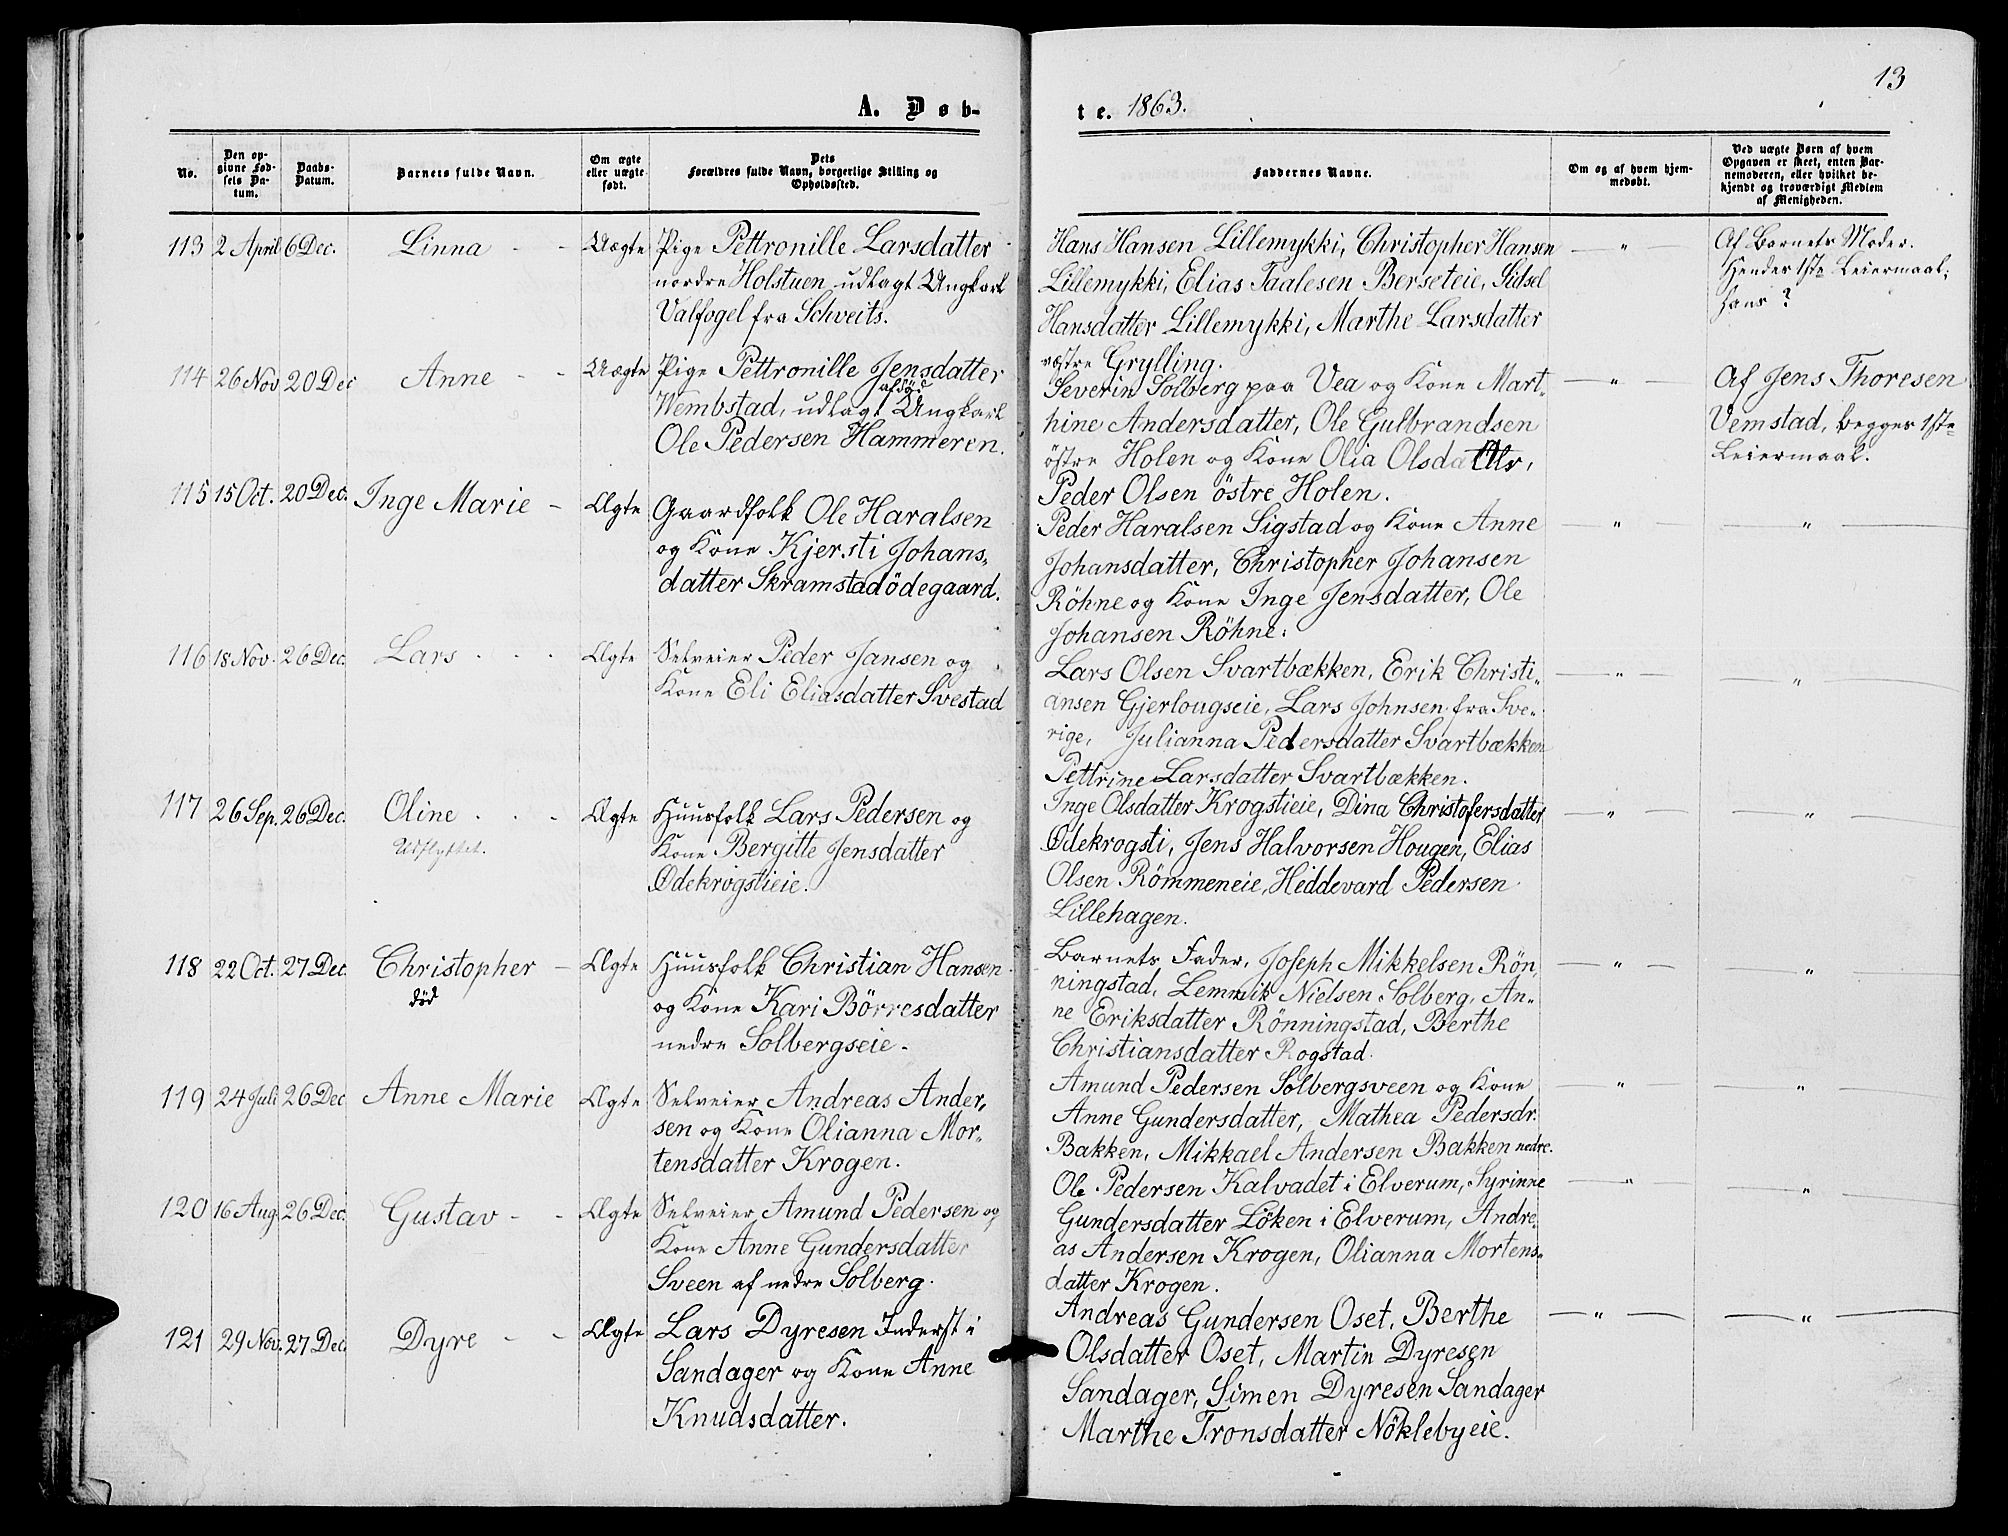 13
A. Døb-
te. 1863.
No.
Den op-
givne Fød-
sels Da-
tum.
Daabs-
Datum.
Barnets fulde Navn.
Om ægte
eller uægte
født.
Dets
Forældres fulde Navn, borgerlige Stilling og
Opholdssted.
Faddernes Navne.
Om og af hvem hjem-
medøbt.
Ved uægte Børn af hvem
Opgaven er skeet, enten Bar-
nemoderen, eller hvilket be-
kjendt og troværdigt Medlem
af Menigheden.
113 2 April 6 Dec. Linna - - Uægte Pige Pettronille Larsdatter
nordre Holstuen, udlagt Ungkarl
Valfogel fra Schveits.
Hans Hansen Lillemykki, Christopher Hansen
Lillemykki, Elias Taalesen Berseteie, Sidsel
Hansdatter Lillemykki, Marthe Larsdatter
västre Grylling.
— " —
Af Barnets Moder.
Hendes 1ste Leiermaal,
hans ?
114 26 Nov 20 Dec Anne - - Uægte Pige Pettronille Jensdatter
Wembstad, udlagt afdöd Ungkarl
Ole Pedersen Hammeren.
Severin Solberg paa Vea og Kone Mart-
hine Andersdatter, Ole Gulbrandsen
östre Holen og Kone Olia Olsdatter,
Peder Olsen östre Holen.
— " —
Af Jens Thoresen
Vemstad, begges 1ste
Leiermaal.
115 15 Oct. 20 Dec. Inge Marie - Ægte Gaardfolk Ole Haralsen
og Kone Kjersti Johans-
datter Skramstadödegaard.
Peder Haralsen Sigstad og Kone Anne
Johansdatter, Christopher Johansen
Röhne og Kone Inge Jensdatter, Ole
Johansen Röhne.
— " — — " —
116 18 Nov. 26 Dec. Lars - - - Ægte Selveier Peder Jansen og
Kone Eli Eliasdatter Svestad
Lars Olsen Svartbækken, Erik Christi-
ansen Gjerlougseie, Lars Johnsen fra Sve-
rige, Julianna Pedersdatter Svartbækken
Pettrine Larsdatter Svartbækken.
— " — — " —
117 26 Sep. 26 Dec. Oline - - - Ægte Huusfolk Lars Pedersen og
Udflyttet.
Kone Bergitte Jensdatter
Ødekrogstieie.
Inge Olsdatter Krogstieie, Dina Christofersdatter
Ødekrogsti, Jens Halvorsen Hougen, Elias
Olsen Römmeneie, Heddevard Pedersen
Lillehagen.
— " — — " —
118 22 Oct. 27 Dec. Christopher - Ægte Huusfolk Christian Hansen
död
og Kone Kari Börresdatter
nedre Solbergseie.
Barnets Fader, Joseph Mikkelsen Rön-
ningstad, Lemmik Nielsen Solberg, An-
ne Eriksdatter Rönningstad, Berthe
Christiansdatter Rogstad.
— " — — " —
119 24 Juli 26 Dec Anne Marie Ægte Selveier Andreas Ander-
sen og Kone Olianna Mor-
tensdatter Krogen.
Amund Pedersen Solbergsveen og Kone
Anne Gundersdatter, Mathea Pedersdr.
Bakken, Mikkael Andersen Bakken nedre.
— " — — " —
120 16 Aug. 26 Dec. Gustav - - Ægte Selveier Amund Pedersen og
Kone Anne Gundersdatter
Sveen af nedre Solberg.
Ole Pedersen Kalvadet i Elverum, Syrinne
Gundersdatter Löken i Elverum, Andre-
as Andersen Krogen, Olianna Mortens-
datter Krogen.
— " — — " —
121 29 Nov. 27 Dec. Dyre - - Ægte Lars Dyresen Inderst i
Sandager og Kone Anne
Knudsdatter.
Andreas Gundersen Oset, Berthe
Olsdatter Oset, Martin Dyresen
Sandager, Simen Dyresen Sandager
Marthe Tronsdatter Nöklebyeie.
— " — — " —